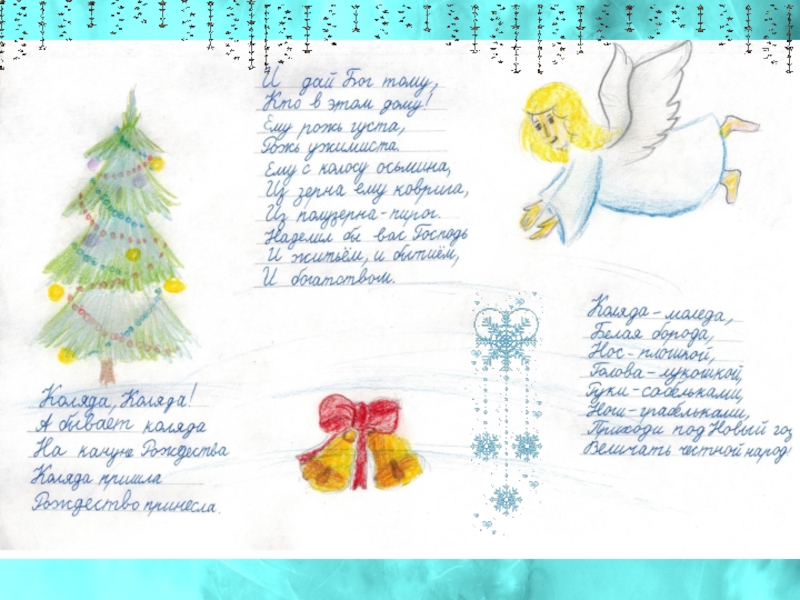 И дай Бог тому,
Кто в этом дому!
Ему рожь густа,
Рожь ужимиста.
Ему с колосу осьмина,
Из зерна ему коврига,
Из полузерна-пирог.
Наделил бы вас Господь
И житьём, и бытиём,
И богатством.
Коляда, Коляда!
А бывает коляда
На кануне Рождества
Коляда пришла
Рождество принесла.
Коляда-моледа,
Белая борода,
Нос-плошкой,
Голова-лукошкой,
Руки-сабельками,
Ноги-грабельками,
Приходи под Новый год
Величать честной народ!